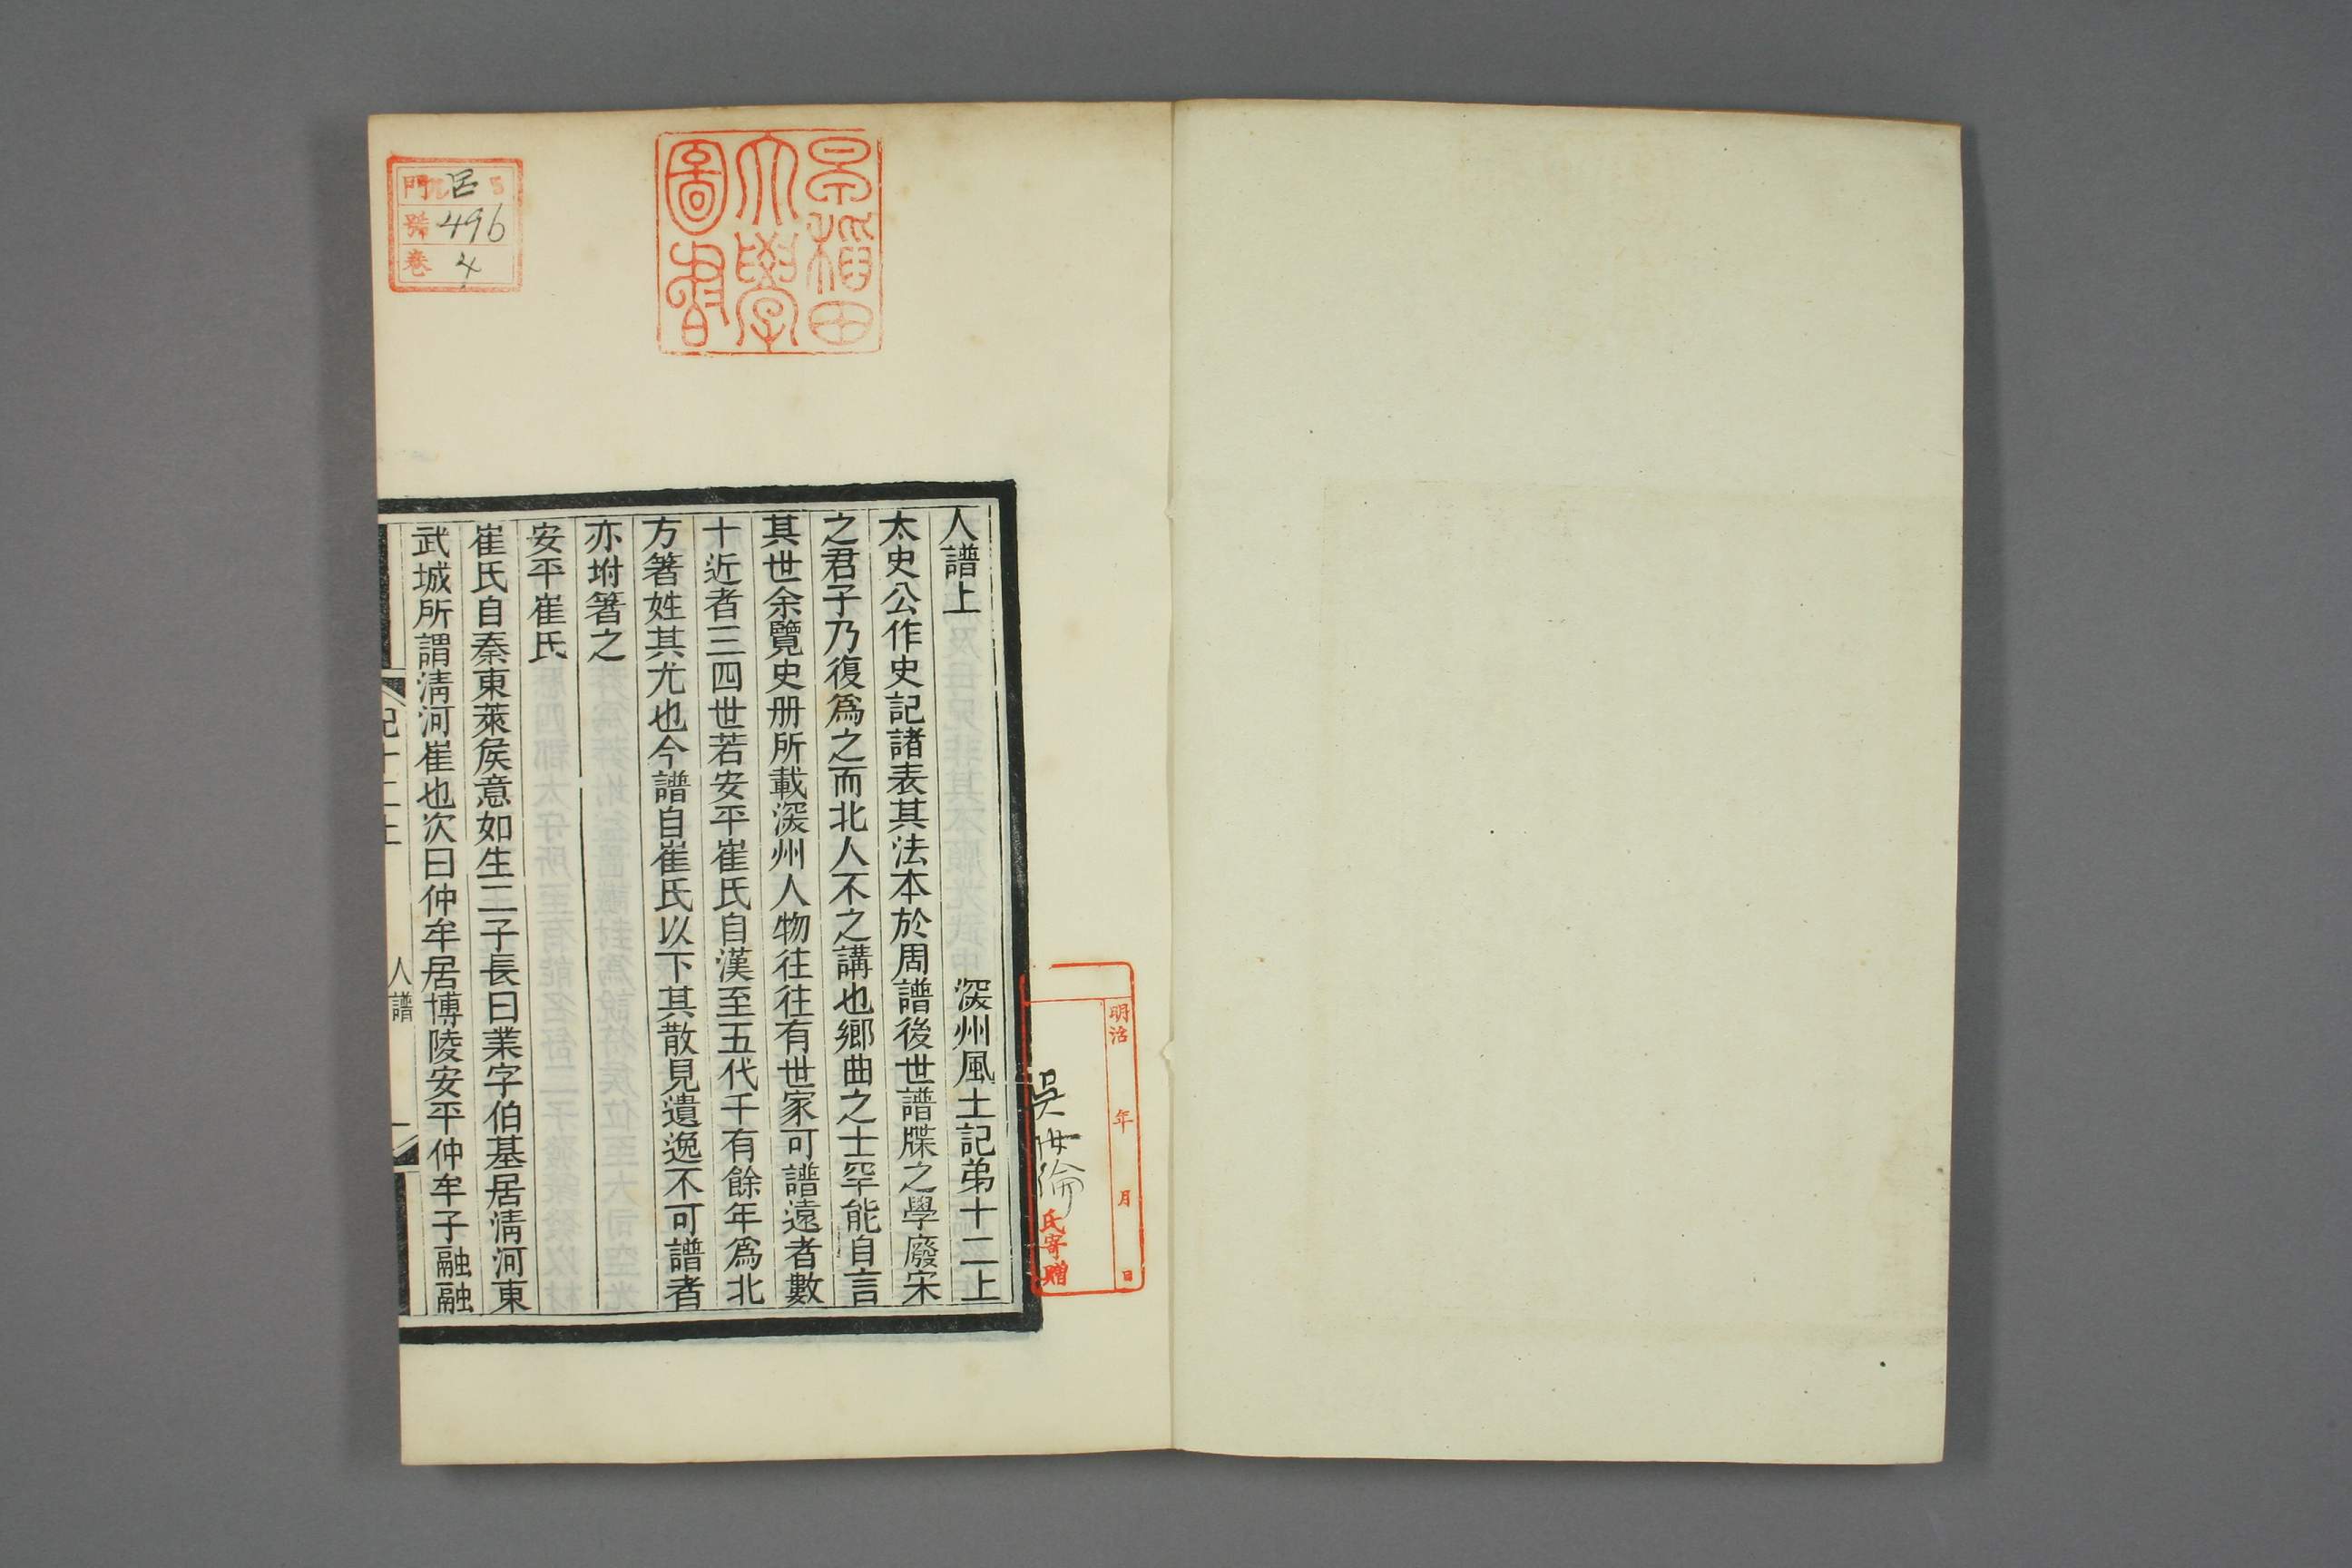 人譜上　深州風土記弟十二上
太史公作史記諸表其法本於周譜後世譜牒之學廢宋
之君子乃復爲之而北人不之講也鄉曲之士罕能自言
其世余覽史册所載深州人物往往有世家可譜遠者數
十近者三四世若安平崔氏自漢至五代千有餘年爲北
方箸姓其尤也今譜自崔氏以下其散見遺逸不可譜者
亦坿箸之
安平崔氏
崔氏自秦東萊矦意如生二子長曰業字伯基居淸河東
武城所謂淸河崔也次曰仲牟居博陵安平仲牟子融融
記十二上
人譜
一
早稲田
大學
圖書
門 呂 5
號 496
卷 4
明治 年 月 日
吳汝綸
氏寄贈